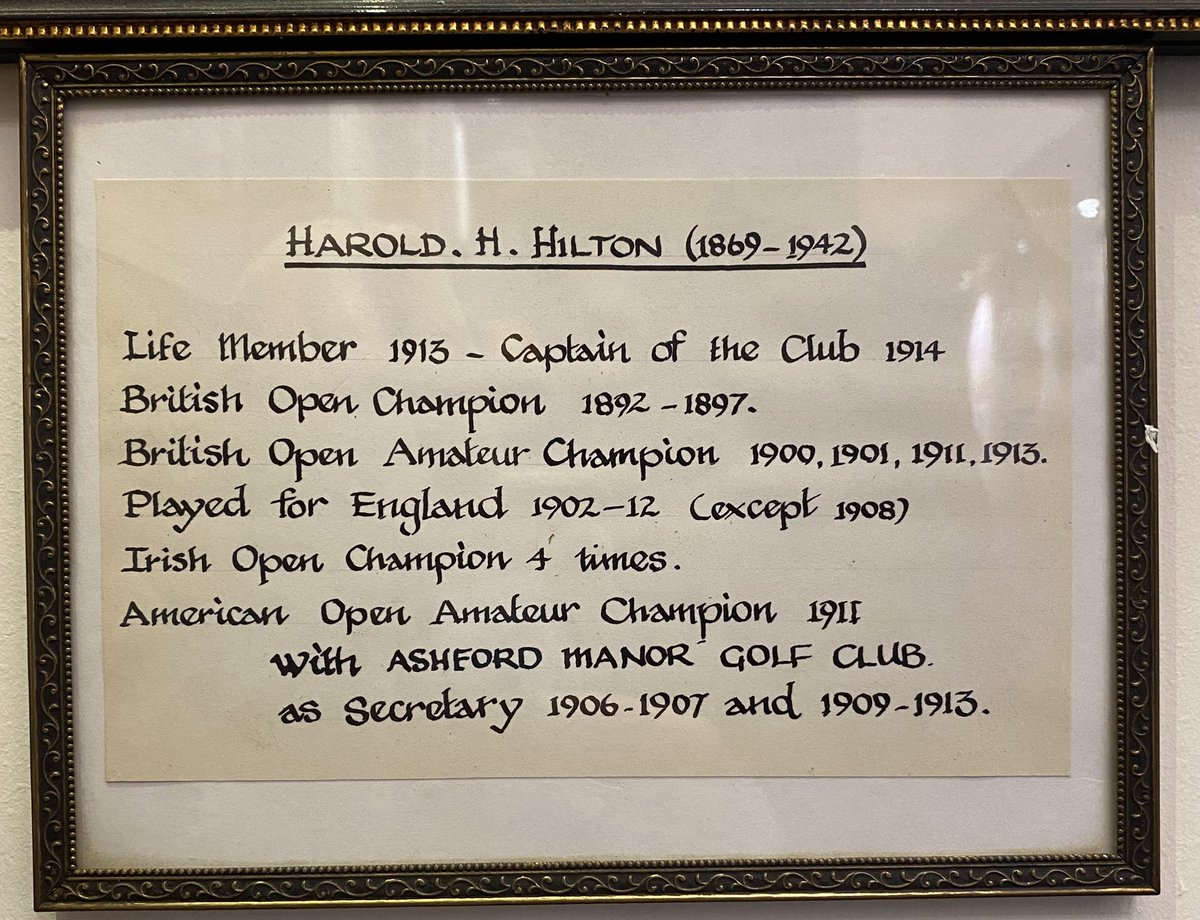 HAROLD. H. HILTON (1869-1942)
Life Member 1913 - Captain of the Club 1914
British Open Champion 1892-1897.
British Open Amateur Champion 1900, 1901, 1911, 1913.
Played for England 1902-12 (except 1908)
Irish Open Champion 4 times.
American Open Amateur Champion 1911
with ASHFORD MANOR GOLF CLUB.
as Secretary 1906-1907 and 1909-1913.